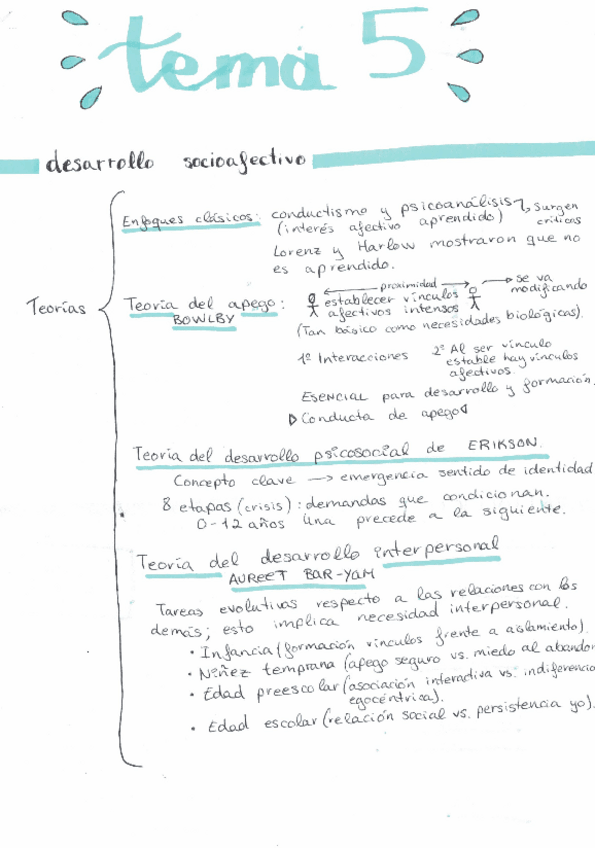 tema 5
desarrollo socioafectivo
Teorías
Enfoques clásicos: conductismo y psicoanálisis, surgen
(interés afectivo aprendido) críticas
Lorenz y Harlow mostraron que no
es aprendido.
Teoría del apego:
BOWLBY
proximidad
establecer vínculos
afectivos intensos
se va
modificando
(Tan básico como necesidades biológicas).
1º Interacciones
2º Al ser vínculo
estable hay vínculos
afectivos.
ESENCIAL para desarrollo y formación.
Conducta de apego
Teoría del desarrollo psicosocial de ERIKSON.
Concepto clave → emergencia sentido de identidad
8 etapas (crisis): demandas que condicionan.
0-12 años una precede a la siguiente.
Teoría del desarrollo interpersonal
AUREET BAR-YAM
Tareas evolutivas respecto a las relaciones con los
demás; esto implica necesidad interpersonal.
• Infancia (formación vínculos frente a aislamiento).
• Niñez temprana (apego seguro vs. miedo al abandon
• Edad preescolar (asociación interactiva vs. indiferencia
egocéntrica).
• Edad escolar (relación social vs. persistencia yo).